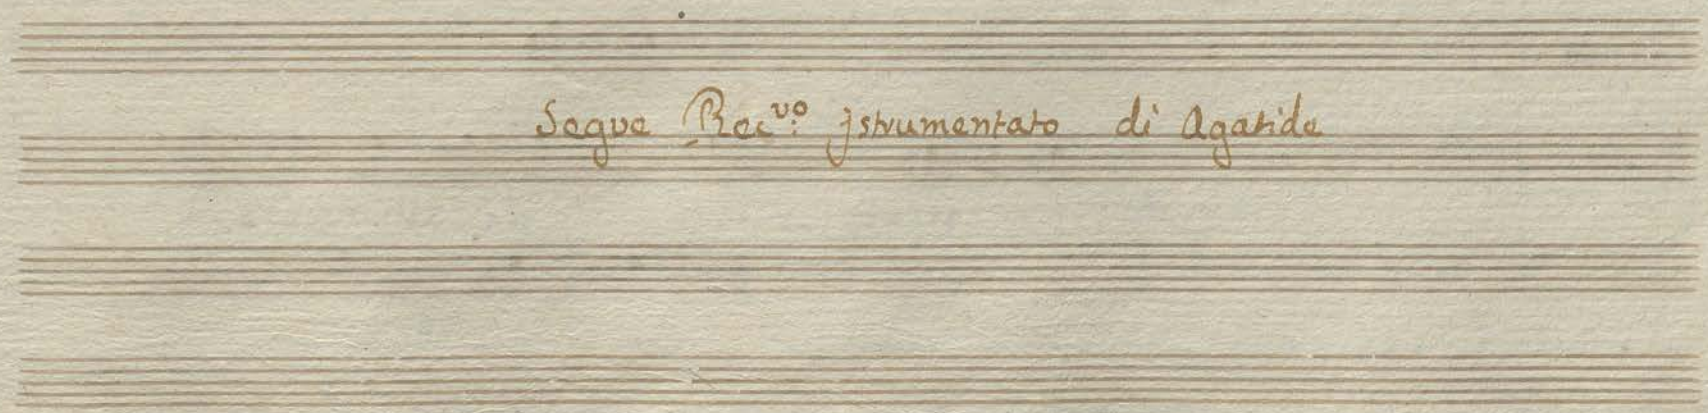 Segue Rec.vo jstrumentato di Agatide